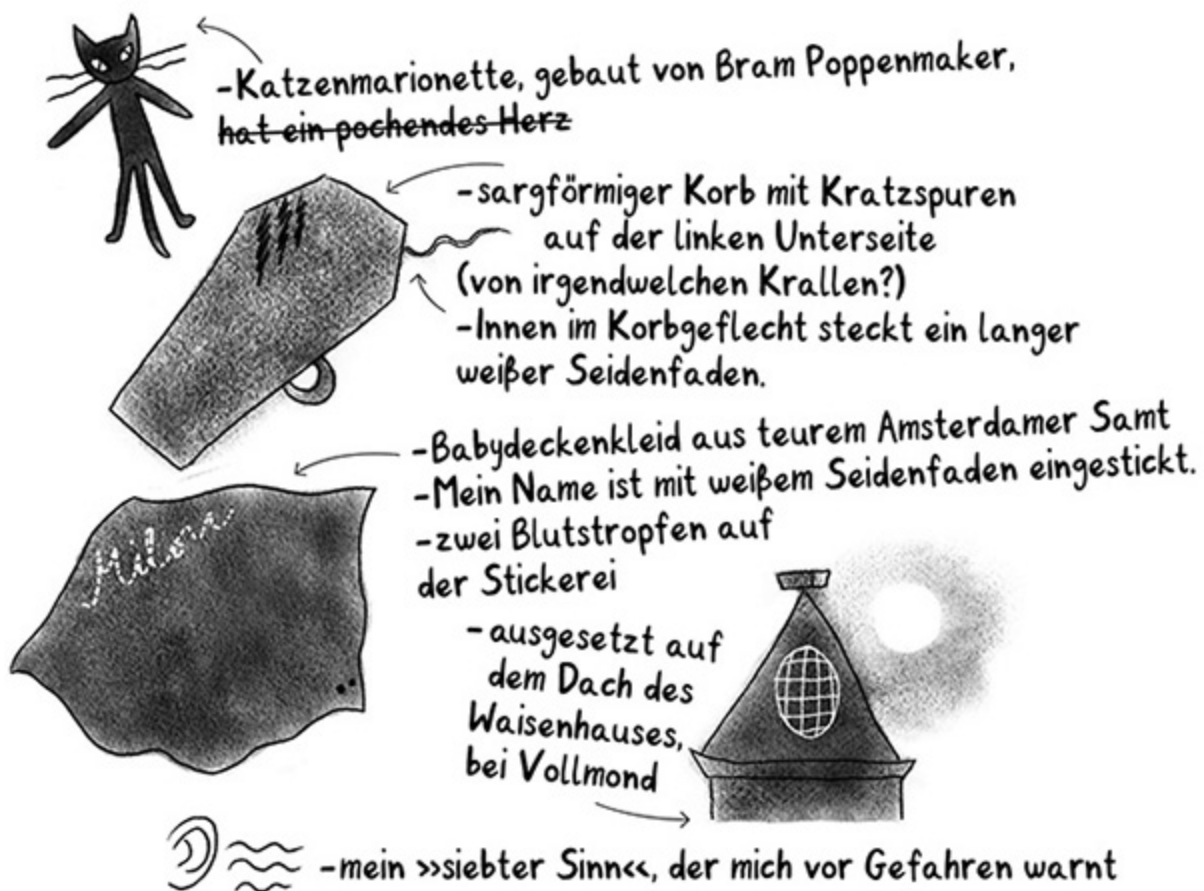 -Katzenmarionette, gebaut von Bram Poppenmaker,
hat ein pochendes Herz
-sargförmiger Korb mit Kratzspuren
auf der linken Unterseite
(von irgendwelchen Krallen?)
-Innen im Korbgeflecht steckt ein langer
weißer Seidenfaden.
-Babydeckenkleid aus teurem Amsterdamer Samt
-Mein Name ist mit weißem Seidenfaden eingestickt.
Milou
-zwei Blutstropfen auf
der Stickerei
-ausgesetzt auf
dem Dach des
Waisenhauses,
bei Vollmond
-mein »siebter Sinn«, der mich vor Gefahren warnt